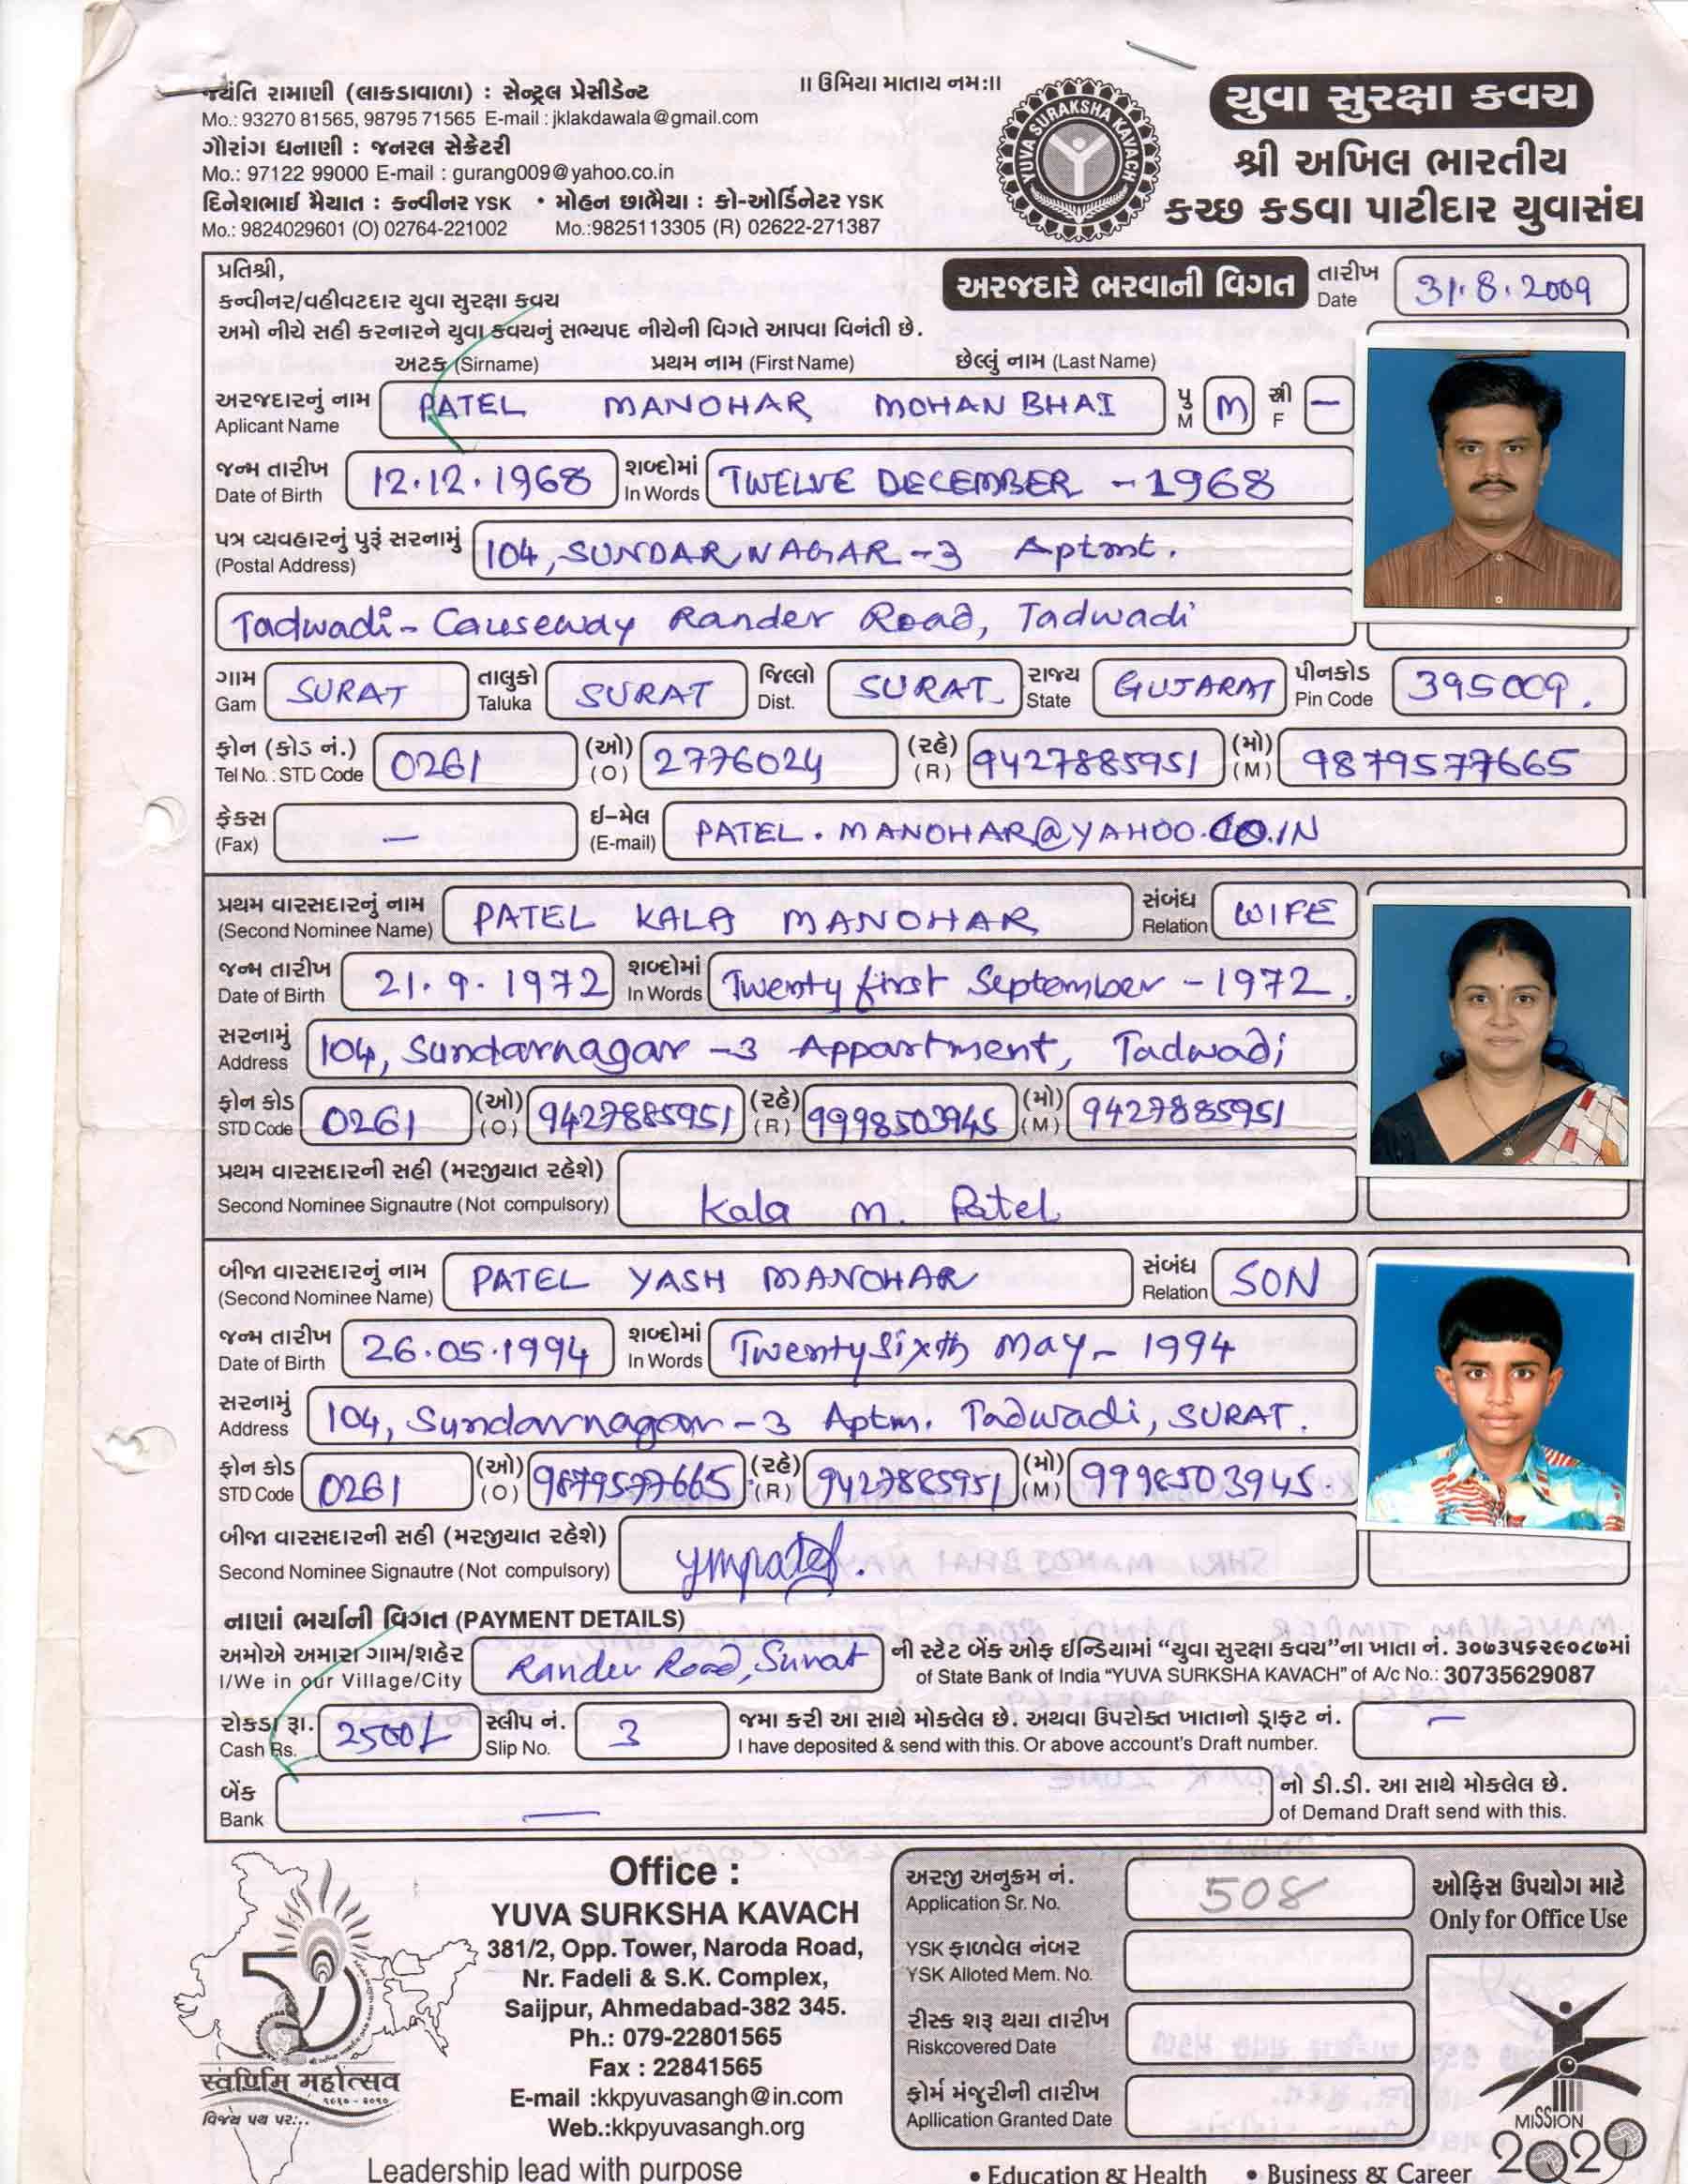 જયંતિ રામાણી (લાકડાવાળા) : સેન્ટ્રલ પ્રેસીડેન્ટ
Mo.: 93270 81565, 98795 71565 E-mail : jklakdawala@gmail.com
ગૌરાંગ ધનાણી : જનરલ સેક્રેટરી
Mo.: 97122 99000 E-mail : gurang009@yahoo.co.in
દિનેશભાઈ મૈયાત : કન્વીનર YSK • મોહન છાભૈયા : કો-ઓર્ડિનેટર YSK
Mo.: 9824029601 (O) 02764-221002 Mo.:9825113305 (R) 02622-271387
।। ઉમિયા માતાય નમઃ।।
YUVA SURAKSHA KAVACH
યુવા સુરક્ષા કવચ
શ્રી અખિલ ભારતીય
કચ્છ કડવા પાટીદાર યુવાસંઘ
પ્રતિશ્રી,
અરજદારે ભરવાની વિગત તારીખ Date 31.8.2009
કન્વીનર/વહીવટદાર યુવા સુરક્ષા કવચ
અમો નીચે સહી કરનારને યુવા કવચનું સભ્યપદ નીચેની વિગતે આપવા વિનંતી છે.
અટક (Sirname) પ્રથમ નામ (First Name) છેલ્લું નામ (Last Name)
અરજદારનું નામ Aplicant Name PATEL MANOHAR MOHAN BHAI પુ M M સ્ત્રી F –
જન્મ તારીખ Date of Birth 12.12.1968 શબ્દોમાં In Words TWELVE DECEMBER - 1968
પત્ર વ્યવહારનું પુરૂં સરનામું (Postal Address) 104, SUNDAR NAGAR - 3 Aptmt.
Tadwadi - Causeway Rander Road, Tadwadi
ગામ Gam SURAT તાલુકો Taluka SURAT જિલ્લો Dist. SURAT. રાજ્ય State GUJARAT પીનકોડ Pin Code 395009.
ફોન (કોડ નં.) Tel No. : STD Code 0261 (ઓ) (O) 2776024 (રહે) (R) 9427885951 (મો) (M) 9879577665
ફેક્સ (Fax) – ઈ-મેલ (E-mail) PATEL.MANOHAR@YAHOO.CO.IN
પ્રથમ વારસદારનું નામ (Second Nominee Name) PATEL KALA MANOHAR સંબંધ Relation WIFE
જન્મ તારીખ Date of Birth 21.9.1972 શબ્દોમાં In Words Twenty first September - 1972.
સરનામું Address 104, Sundarnagar - 3 Appartment, Tadwadi
ફોન કોડ STD Code 0261 (ઓ) (O) 9427885951 (રહે) (R) 9998503945 (મો) (M) 9427885951
પ્રથમ વારસદારની સહી (મરજીયાત રહેશે)
Second Nominee Signautre (Not compulsory) Kala M. Patel
બીજા વારસદારનું નામ (Second Nominee Name) PATEL YASH MANOHAR સંબંધ Relation SON
જન્મ તારીખ Date of Birth 26.05.1994 શબ્દોમાં In Words Twenty Sixth May - 1994
સરનામું Address 104, Sundarnagar - 3 Aptm. Tadwadi, SURAT.
ફોન કોડ STD Code 0261 (ઓ) (O) 9879577665 (રહે) (R) 9427885951 (મો) (M) 9998503945.
બીજા વારસદારની સહી (મરજીયાત રહેશે)
Second Nominee Signautre (Not compulsory) ympatel.
નાણાં ભર્યાની વિગત (PAYMENT DETAILS)
અમોએ અમારા ગામ/શહેર Rander Road, Surat ની સ્ટેટ બેંક ઓફ ઈન્ડિયામાં “યુવા સુરક્ષા કવચ”ના ખાતા નં. ૩૦૭૩૫૬૨૯૦૮૭માં
I/We in our Village/City of State Bank of India "YUVA SURKSHA KAVACH" of A/c No.: 30735629087
રોકડા રૂા. 2500/- સ્લીપ નં. 3 જમા કરી આ સાથે મોકલેલ છે. અથવા ઉપરોક્ત ખાતાનો ડ્રાફ્ટ નં. –
Cash Rs. Slip No. I have deposited & send with this. Or above account's Draft number.
બેંક – નો ડી.ડી. આ સાથે મોકલેલ છે.
Bank of Demand Draft send with this.
સ્વર્ણિમ મહોત્સવ
૧૯૬૦ - ૨૦૧૦
વિજય પથ પર...
Office :
YUVA SURKSHA KAVACH
381/2, Opp. Tower, Naroda Road,
Nr. Fadeli & S.K. Complex,
Saijpur, Ahmedabad-382 345.
Ph.: 079-22801565
Fax : 22841565
E-mail :kkpyuvasangh@in.com
Web.:kkpyuvasangh.org
Leadership lead with purpose
અરજી અનુક્રમ નં. Application Sr. No. 508
ઓફિસ ઉપયોગ માટે
Only for Office Use
YSK ફાળવેલ નંબર
YSK Alloted Mem. No.
રીસ્ક શરૂ થયા તારીખ
Riskcovered Date
ફોર્મ મંજુરીની તારીખ
Apllication Granted Date
MISSION
2020
• Education & Health • Business & Career